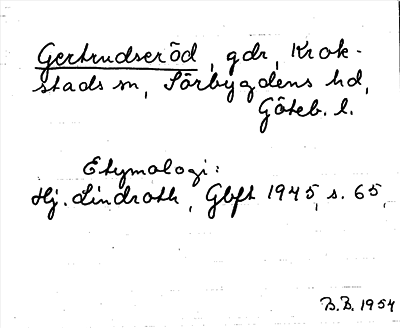 Gertrudseröd, gdr, Krok-
stads sn, Sörbygdens hd,
Göteb. l.
Etymologi:
Hj. Lindroth, Gbft 1945, s. 65,
B.B. 1954